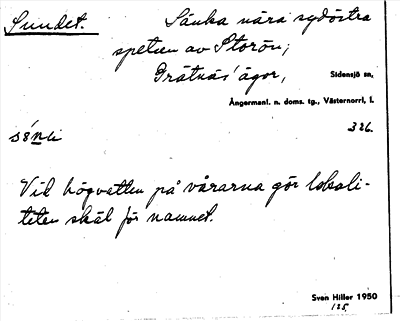 Sundet. Sänka nära sydöstra
spetsen av Storön;
Grätnäs' ägor, Sidensjö sn,
Ångermanl. n. doms. tg., Västernorrl. l.
326.
Vid högvatten på vårarna gör lokali-
teten skäl för namnet.
Sven Hiller 1950
125.